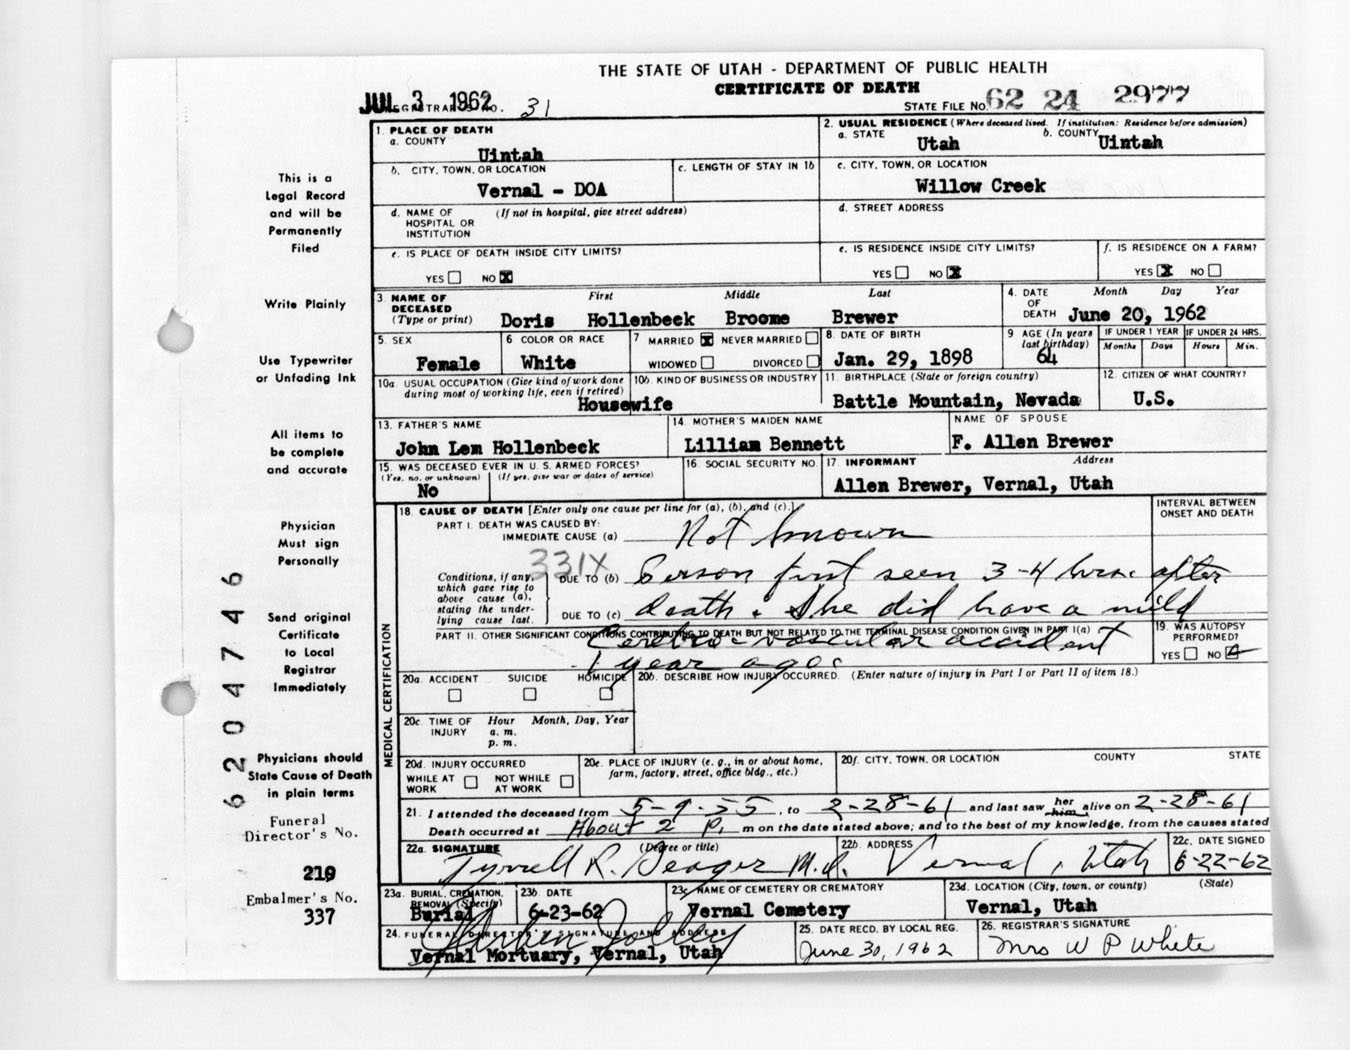 THE STATE OF UTAH - DEPARTMENT OF PUBLIC HEALTH
CERTIFICATE OF DEATH
JUL 3 1962
REGISTRAR'S NO. 31
STATE FILE NO. 62 24 2977
This is a
Legal Record
and will be
Permanently
Filed
Write Plainly
Use Typewriter
or Unfading Ink
All items to
be complete
and accurate
Physician
Must sign
Personally
Send original
Certificate
to Local
Registrar
Immediately
Physicians should
State Cause of Death
in plain terms
Funeral
Director's No.
219
Embalmer's No.
337
6204746
1. PLACE OF DEATH
a. COUNTY
Uintah
2. USUAL RESIDENCE (Where deceased lived. If institution: Residence before admission)
a. STATE Utah b. COUNTY Uintah
b. CITY, TOWN, OR LOCATION
Vernal - DOA
c. LENGTH OF STAY IN 1b
c. CITY, TOWN, OR LOCATION
Willow Creek
d. NAME OF (If not in hospital, give street address)
HOSPITAL OR
INSTITUTION
d. STREET ADDRESS
e. IS PLACE OF DEATH INSIDE CITY LIMITS?
YES NO X
e. IS RESIDENCE INSIDE CITY LIMITS?
YES NO X
f. IS RESIDENCE ON A FARM?
YES X NO
3. NAME OF First Middle Last
DECEASED
(Type or print) Doris Hollenbeck Broome Brewer
4. DATE Month Day Year
OF
DEATH June 20, 1962
5. SEX
Female
6 COLOR OR RACE
White
7 MARRIED X NEVER MARRIED
WIDOWED DIVORCED
8. DATE OF BIRTH
Jan. 29, 1898
9 AGE (In years
last birthday)
64
IF UNDER 1 YEAR
Months Days
IF UNDER 24 HRS.
Hours Min.
10a. USUAL OCCUPATION (Give kind of work done
during most of working life, even if retired)
Housewife
10b. KIND OF BUSINESS OR INDUSTRY
11. BIRTHPLACE (State or foreign country)
Battle Mountain, Nevada
12. CITIZEN OF WHAT COUNTRY?
U.S.
13. FATHER'S NAME
John Lem Hollenbeck
14. MOTHER'S MAIDEN NAME
Lillian Bennett
NAME OF SPOUSE
F. Allen Brewer
15. WAS DECEASED EVER IN U. S. ARMED FORCES?
(Yes, no. or unknown) (If yes, give war or dates of service)
No
16 SOCIAL SECURITY NO.
17. INFORMANT Address
Allen Brewer, Vernal, Utah
MEDICAL CERTIFICATION
18. CAUSE OF DEATH [Enter only one cause per line for (a), (b), and (c).]
INTERVAL BETWEEN
ONSET AND DEATH
PART I. DEATH WAS CAUSED BY:
IMMEDIATE CAUSE (a) Not known
331X
Conditions, if any,
which gave rise to
above cause (a),
stating the under-
lying cause last.
DUE TO (b) Person first seen 3-4 hrs. after
DUE TO (c) death. She did have a mild
PART II. OTHER SIGNIFICANT CONDITIONS CONTRIBUTING TO DEATH BUT NOT RELATED TO THE TERMINAL DISEASE CONDITION GIVEN IN PART I(a)
Cerebro-vascular accident
1 year ago
19. WAS AUTOPSY
PERFORMED?
YES NO
20a. ACCIDENT SUICIDE HOMICIDE
20b. DESCRIBE HOW INJURY OCCURRED. (Enter nature of injury in Part I or Part II of item 18.)
20c. TIME OF Hour Month, Day, Year
INJURY a. m.
p. m.
20d. INJURY OCCURRED
WHILE AT NOT WHILE
WORK AT WORK
20e. PLACE OF INJURY (e. g., in or about home,
farm, factory, street, office bldg., etc.)
20f. CITY, TOWN, OR LOCATION COUNTY STATE
21. I attended the deceased from 5-9-55, to 2-28-61 and last saw her him alive on 2-28-61
Death occurred at About 2 P. m on the date stated above; and to the best of my knowledge, from the causes stated
22a. SIGNATURE (Degree or title)
Tyrrell R. Seager M.D.
22b. ADDRESS
Vernal, Utah
22c. DATE SIGNED
6-22-62
23a. BURIAL, CREMATION,
REMOVAL (Specify)
Burial
23b. DATE
6-23-62
23c NAME OF CEMETERY OR CREMATORY
Vernal Cemetery
23d. LOCATION (City, town, or county) (State)
Vernal, Utah
24. FUNERAL DIRECTOR'S SIGNATURE AND ADDRESS
Vernal Mortuary, Vernal, Utah
25. DATE RECD. BY LOCAL REG.
June 30, 1962
26. REGISTRAR'S SIGNATURE
Mrs W P White